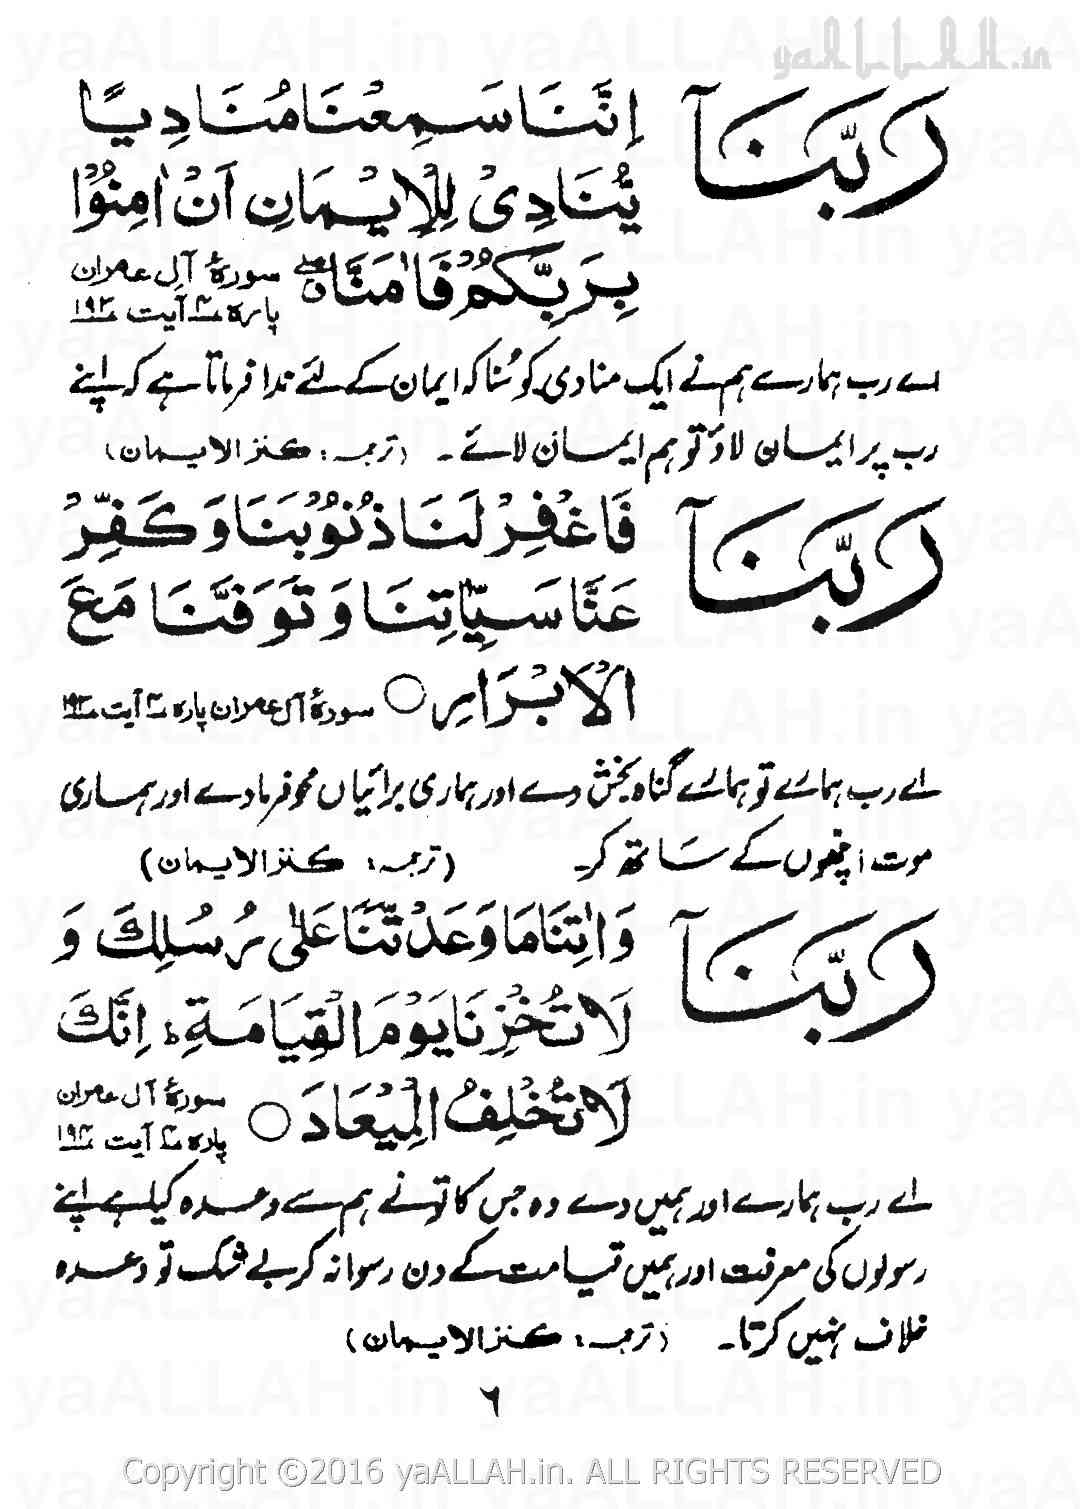 yaALLAH.in
رَبَّنَآ اِنَّنَا سَمِعْنَا مُنَادِیًا
یُّنَادِیْ لِلْاِیْمَانِ اَنْ اٰمِنُوْا
بِرَبِّكُمْ فَاٰمَنَّا ۖ سورۂ آلِ عمران
پارہ ۴ آیت ۱۹۳
اے رب ہمارے ہم نے ایک منادی کو سُنا کہ ایمان کے لئے ندا فرماتا ہے کہ اپنے
رب پر ایمان لاؤ تو ہم ایمان لائے۔ (ترجمہ: کنز الایمان)
رَبَّنَا فَاغْفِرْ لَنَا ذُنُوْبَنَا وَ كَفِّرْ
عَنَّا سَیِّاٰتِنَا وَ تَوَفَّنَا مَعَ
الْاَبْرَارِ ○ سورۂ آلِ عمران پارہ ۴ آیت ۱۹۳
اے رب ہمارے تو ہمارے گناہ بخش دے اور ہماری برائیاں محو فرما دے اور ہماری
موت اچھوں کے ساتھ کر۔ (ترجمہ: کنز الایمان)
رَبَّنَا وَ اٰتِنَا مَا وَعَدْتَّنَا عَلٰی رُسُلِكَ وَ
لَا تُخْزِنَا یَوْمَ الْقِیَامَةِ ؕ اِنَّكَ
لَا تُخْلِفُ الْمِیْعَادَ ○ سورۂ آل عمران
پارہ ۴ آیت ۱۹۴
اے رب ہمارے اور ہمیں دے وہ جس کا تو نے ہم سے وعدہ کیا ہے اپنے
رسولوں کی معرفت اور ہمیں قیامت کے دن رسوا نہ کر بے شک تو وعدہ
خلاف نہیں کرتا۔ (ترجمہ: کنز الایمان)
۶
Copyright ©2016 yaALLAH.in. ALL RIGHTS RESERVED